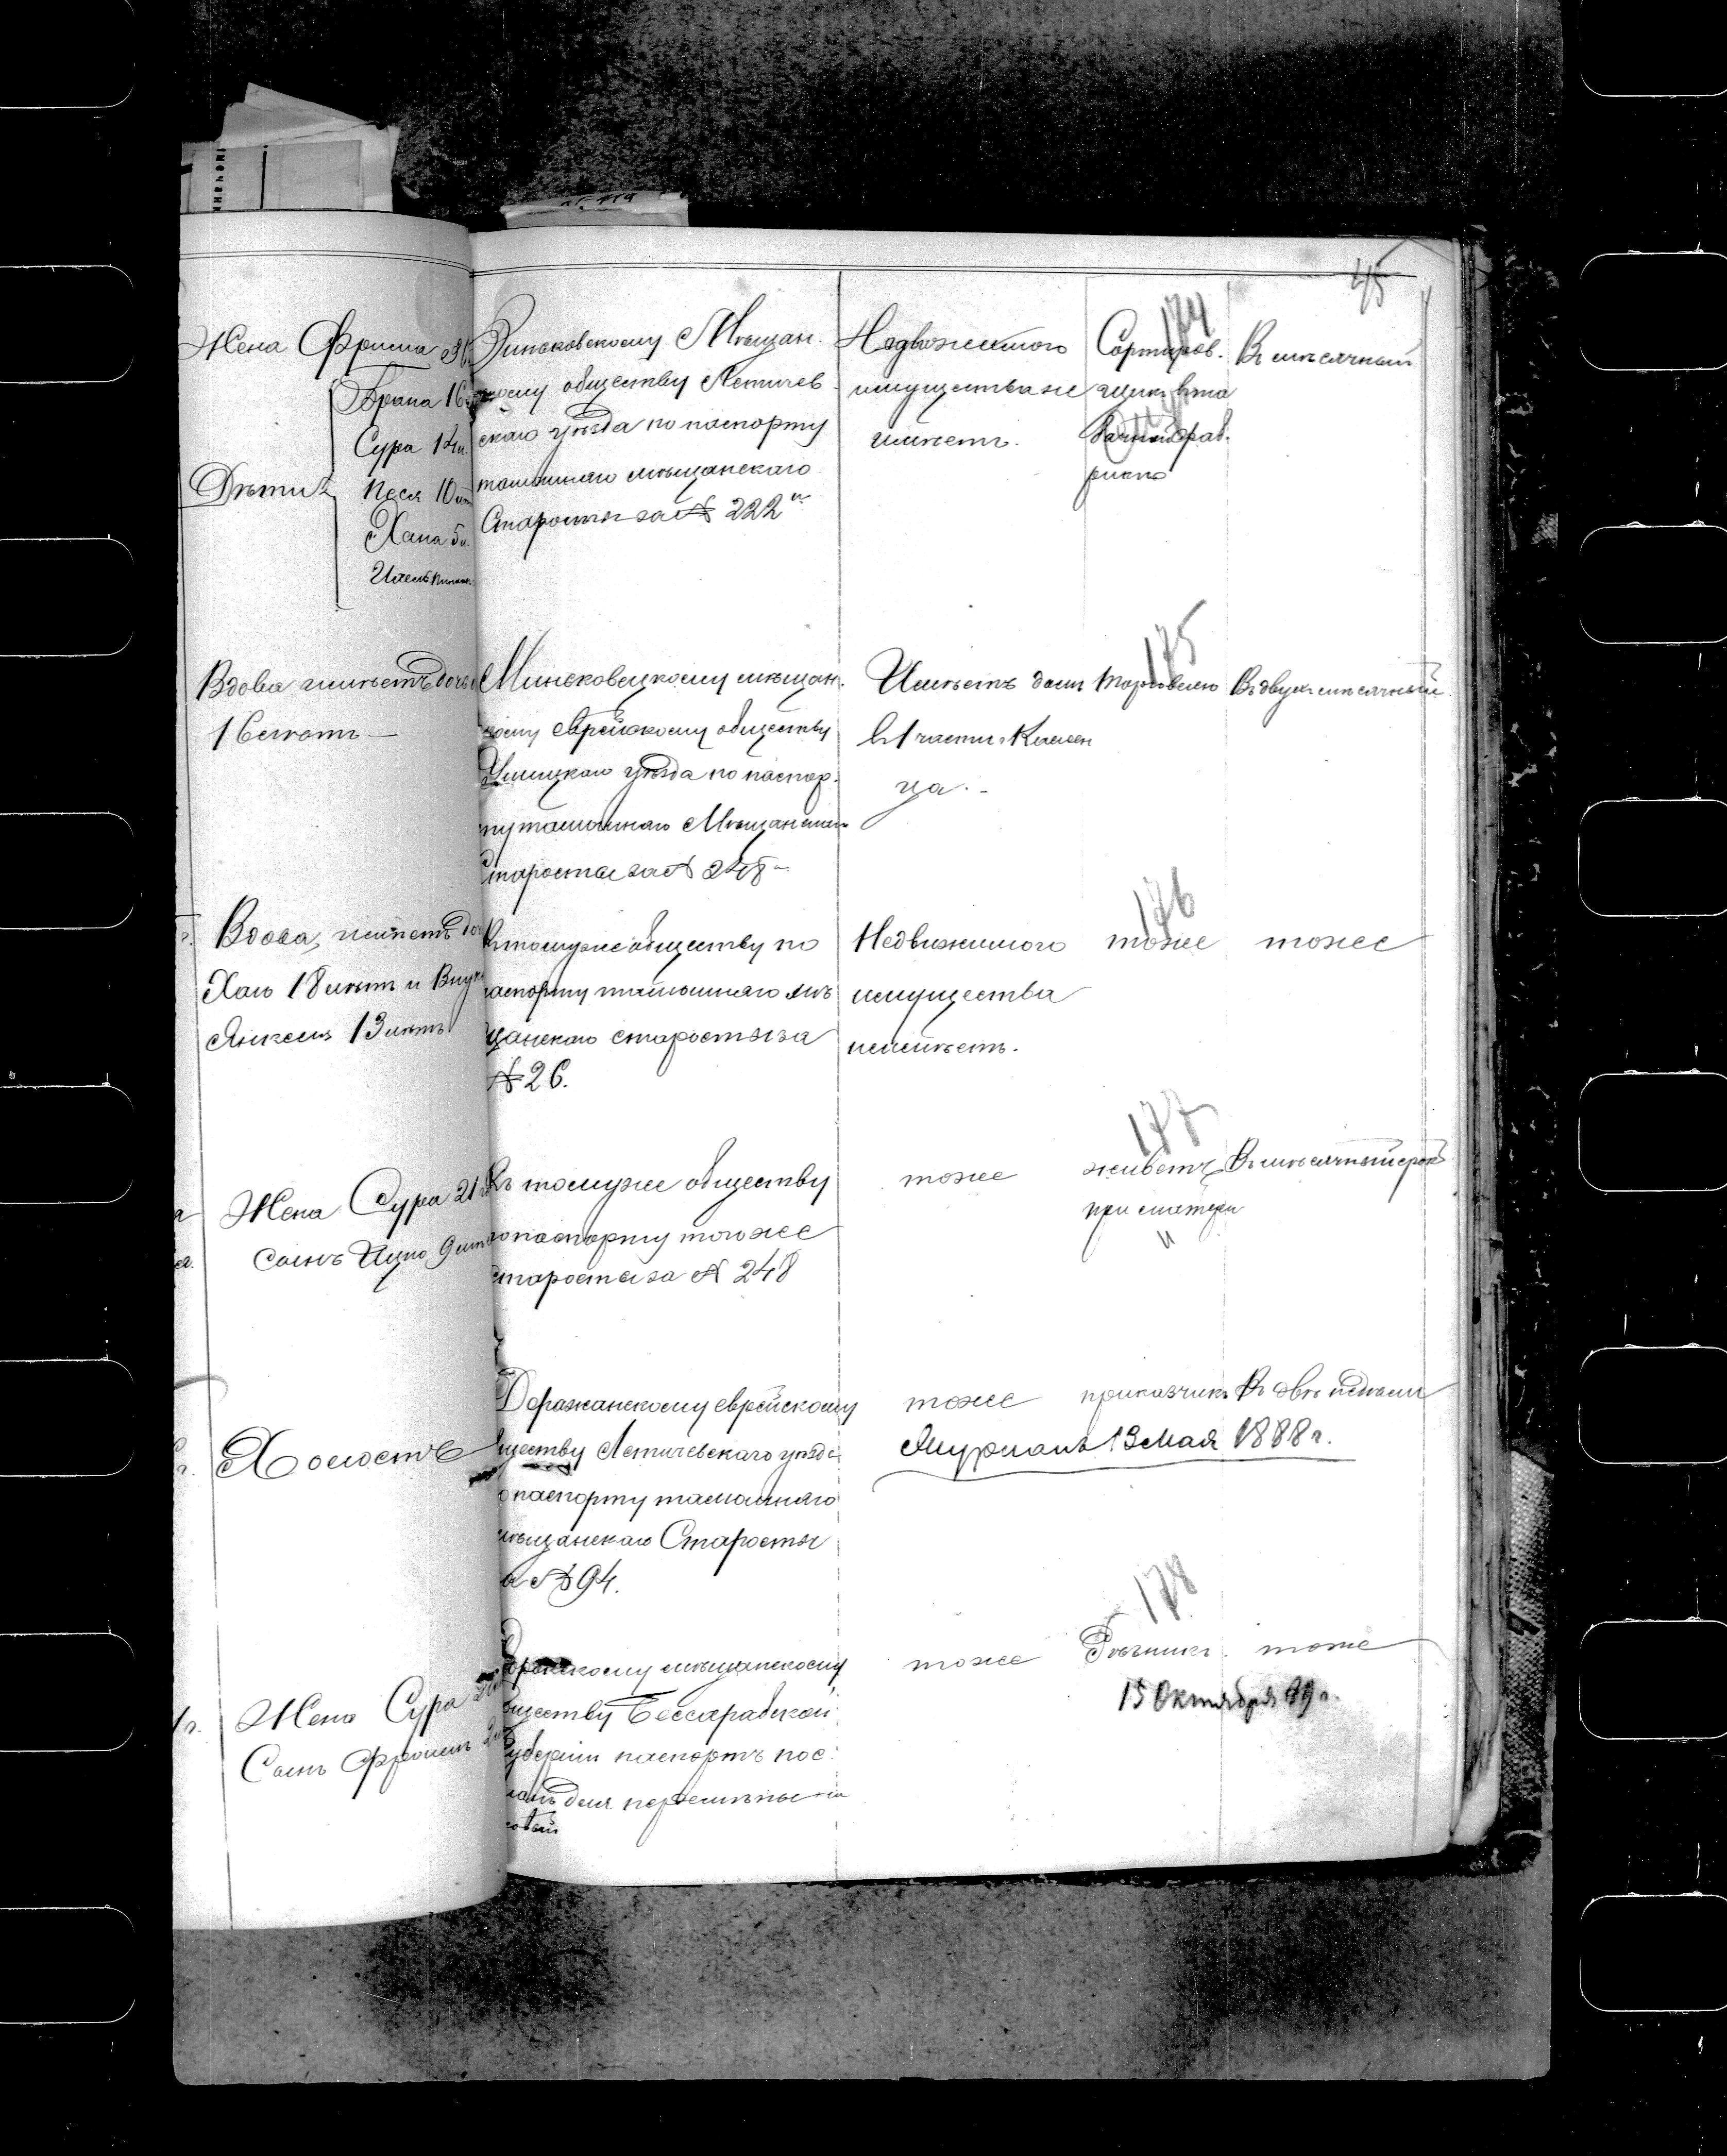 45
174
Жена Фрима 36
Брана 16
Сура 14 л.
Дѣти Песя 10 лѣт
Хана 5 л.
Зиньковскому Мѣщан.
скому обществу Летичев
скаго уѣзда по паспорту
тамошняго мѣщанскаго
Старосты за № 222
Недвижимого
имущества не
имѣетъ.
Сортиров.
щикъ в та
бачной фаб.
рики
Въ мѣсячный
175
Вдова имѣетъ дочь
16 лѣтъ —
Миньковецкому мѣщан.
скому еврейскому обществу
Ушицкаго уѣзда по паспор.
ту тамошняго Мѣщанскаго
Старосты за № 248
Имѣетъ домъ
в 1 части г. Камен
ца. -
торговлею
Въ двухъ мѣсячный
176
Вдова, имѣетъ до
Хаю 18 лѣтъ и Внук
Янкель 13 лѣтъ
Къ томуже обществу по
паспорту тамошняго мѣ
щанскаго старосты за
№ 26.
Недвижимого
имущества
неимѣетъ.
тоже
тоже
177
Жена Сура 21
сынъ Ицко 9
Къ томуже обществу
по паспорту тогоже
старосты за № 248
тоже
живетъ
при матери
Въ мѣсячный срок
Холостъ
Деражанскому еврейскому
обществу Летичевскаго уѣзда
по паспорту тамошняго
мѣщанскаго Старосты
за № 94.
тоже
приказчикъ
Въ двѣ недѣли
13 Мая 1888 г.
178
Жена Сура
Сынъ Фроимъ
мѣщанскому
обществу Бессарабской
Губерніи паспортъ пос.
ланъ для перемѣны на
новый
тоже
Рѣзникъ.
тоже
15 Октября 89 г.